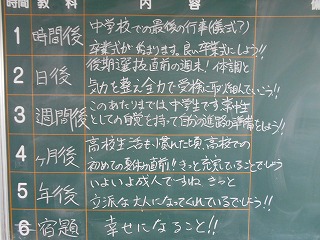 時間 教科 内容 備
1 時間後 中学校での最後の行事(儀式?)
卒業式が始まります。良い卒業式にしよう!!
2 日後 後期選抜直前の週末! 体調と
気力を整え全力で受検に取り組んでいこう!!
3 週間後 このあたりまでは、中学生です。東桂
としての自覚を持って自分の進路の準備をしよう!!
4 ヶ月後 高校生活も慣れた頃、高校での
初めての夏休み直前!! きっと充実していることでしょう
5 年後 いよいよ成人ですね きっと
立派な大人になってくれているでしょう!!
6 宿題 幸せになること!!